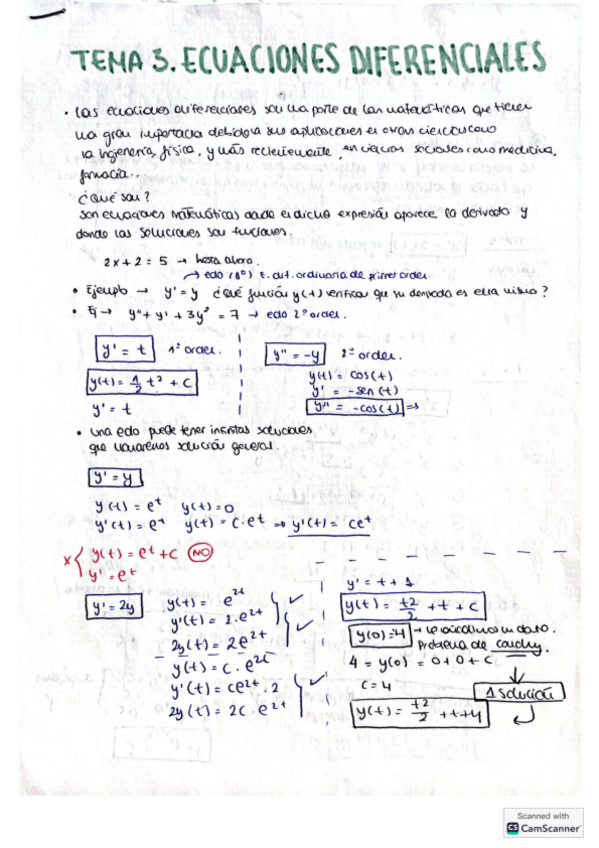 TEMA 3. ECUACIONES DIFERENCIALES
• Las ecuaciones diferenciales son una parte de las matemáticas que tienen
una gran importancia debido a sus aplicaciones en otras ciencias como
la ingeniería, física, y más recientemente, en ciencias sociales como medicina,
farmacia..
¿Qué son?
Son ecuaciones matemáticas donde en dicha expresión aparece la derivada y
donde las soluciones son funciones.
2x + 2 = 5 → hasta ahora.
→ edo ordinaria de primer orden.
• Ejemplo → y' = y ¿Qué función y(t) verifica que su derivada es ella misma?
• Ej → y'' + y' + 3y² = 7 → edo 2º orden.
y' = t 1º orden.
y(t) = 1/2 t² + C
y' = t
y'' = -y 2º orden.
y(t) = cos(t)
y' = -sen(t)
y'' = -cos(t) ⇒
• Una edo puede tener infinitas soluciones
que llamaremos solución general.
y' = y
y(t) = e^t y(t) = 0
y'(t) = e^t y(t) = c·e^t ⇒ y'(t) = ce^t
x { y(t) = e^t + c NO
y' = e^t
y' = 2y
y(t) = e^2t
y'(t) = 2·e^2t ✓
2y(t) = 2e^2t ✓
y(t) = c·e^2t
y'(t) = ce^2t·2 ✓
2y(t) = 2c·e^2t
y' = t + 1
y(t) = t2/2 + t + c
y(0) = 4 → le añadimos un dato.
Problema de cauchy.
4 = y(0) = 0 + 0 + c
c = 4
1 solución
y(t) = t2/2 + t + 4
Scanned with
CS CamScanner